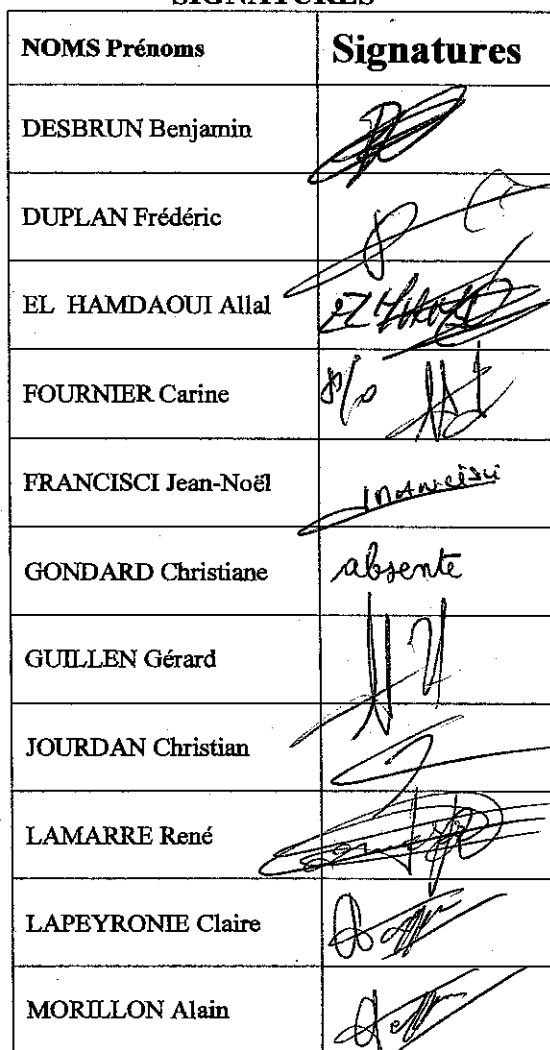 SIGNATURES
NOMS Prénoms Signatures
DESBRUN Benjamin
DUPLAN Frédéric
EL HAMDAOUI Allal
FOURNIER Carine P/o
FRANCISCI Jean-Noël
GONDARD Christiane absente
GUILLEN Gérard
JOURDAN Christian
LAMARRE René
LAPEYRONIE Claire
MORILLON Alain